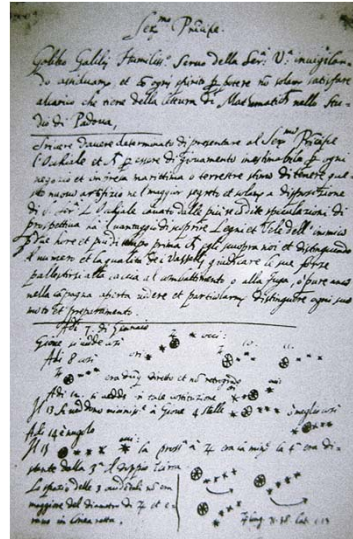 Ser.mo Principe.
Galileo Galilei Humiliss.o Servo della Ser.a V.a invigilan-
do assiduam.te et con ogni spirito p potere no solam satisfare
alcarico che tiene della lettura di Mathematich nello Stu-
dio di Padova,
Scrivere davere determinato di presentare al Ser.mo Principe
l'Occhiale et p essere di giovamento inestimabile p ogni
negocio et impresa marittima o terrestre stimo di tenere que-
sto nuovo artifizio nel maggior segreto et solam a disposizione
di L'Occhiale cavato dalle più recondite speculazioni di
prospettiva ha il vantaggio di scoprire Legni et Vele dell' inimico
p due hore et più di tempo prima ch egli scuopra noi et distinguendo
il numero et la qualità dei Vasselli giudicare le sue forze
pallestirsi alla caccia al combattimento o alla fuga, o pure anco
nella capagna aperta vedere et particolarm distinguere ogni suo
moto et preparamento.
Adi 7. di Gennaio
Giove si vede così
Adi 8 così
era diretto et no retrogrado
Adi 12. si vede in tale costituzione
Il 13. si veddono a Giove 4 stelle meglio così
Adi 14 è nugolo
Il 15 la pross.a a era la 4.a era di-
stante dalla 3.a il doppio
Lo spatio delle 3 no era
maggiore del diametro di et e-
rano in linea retta.